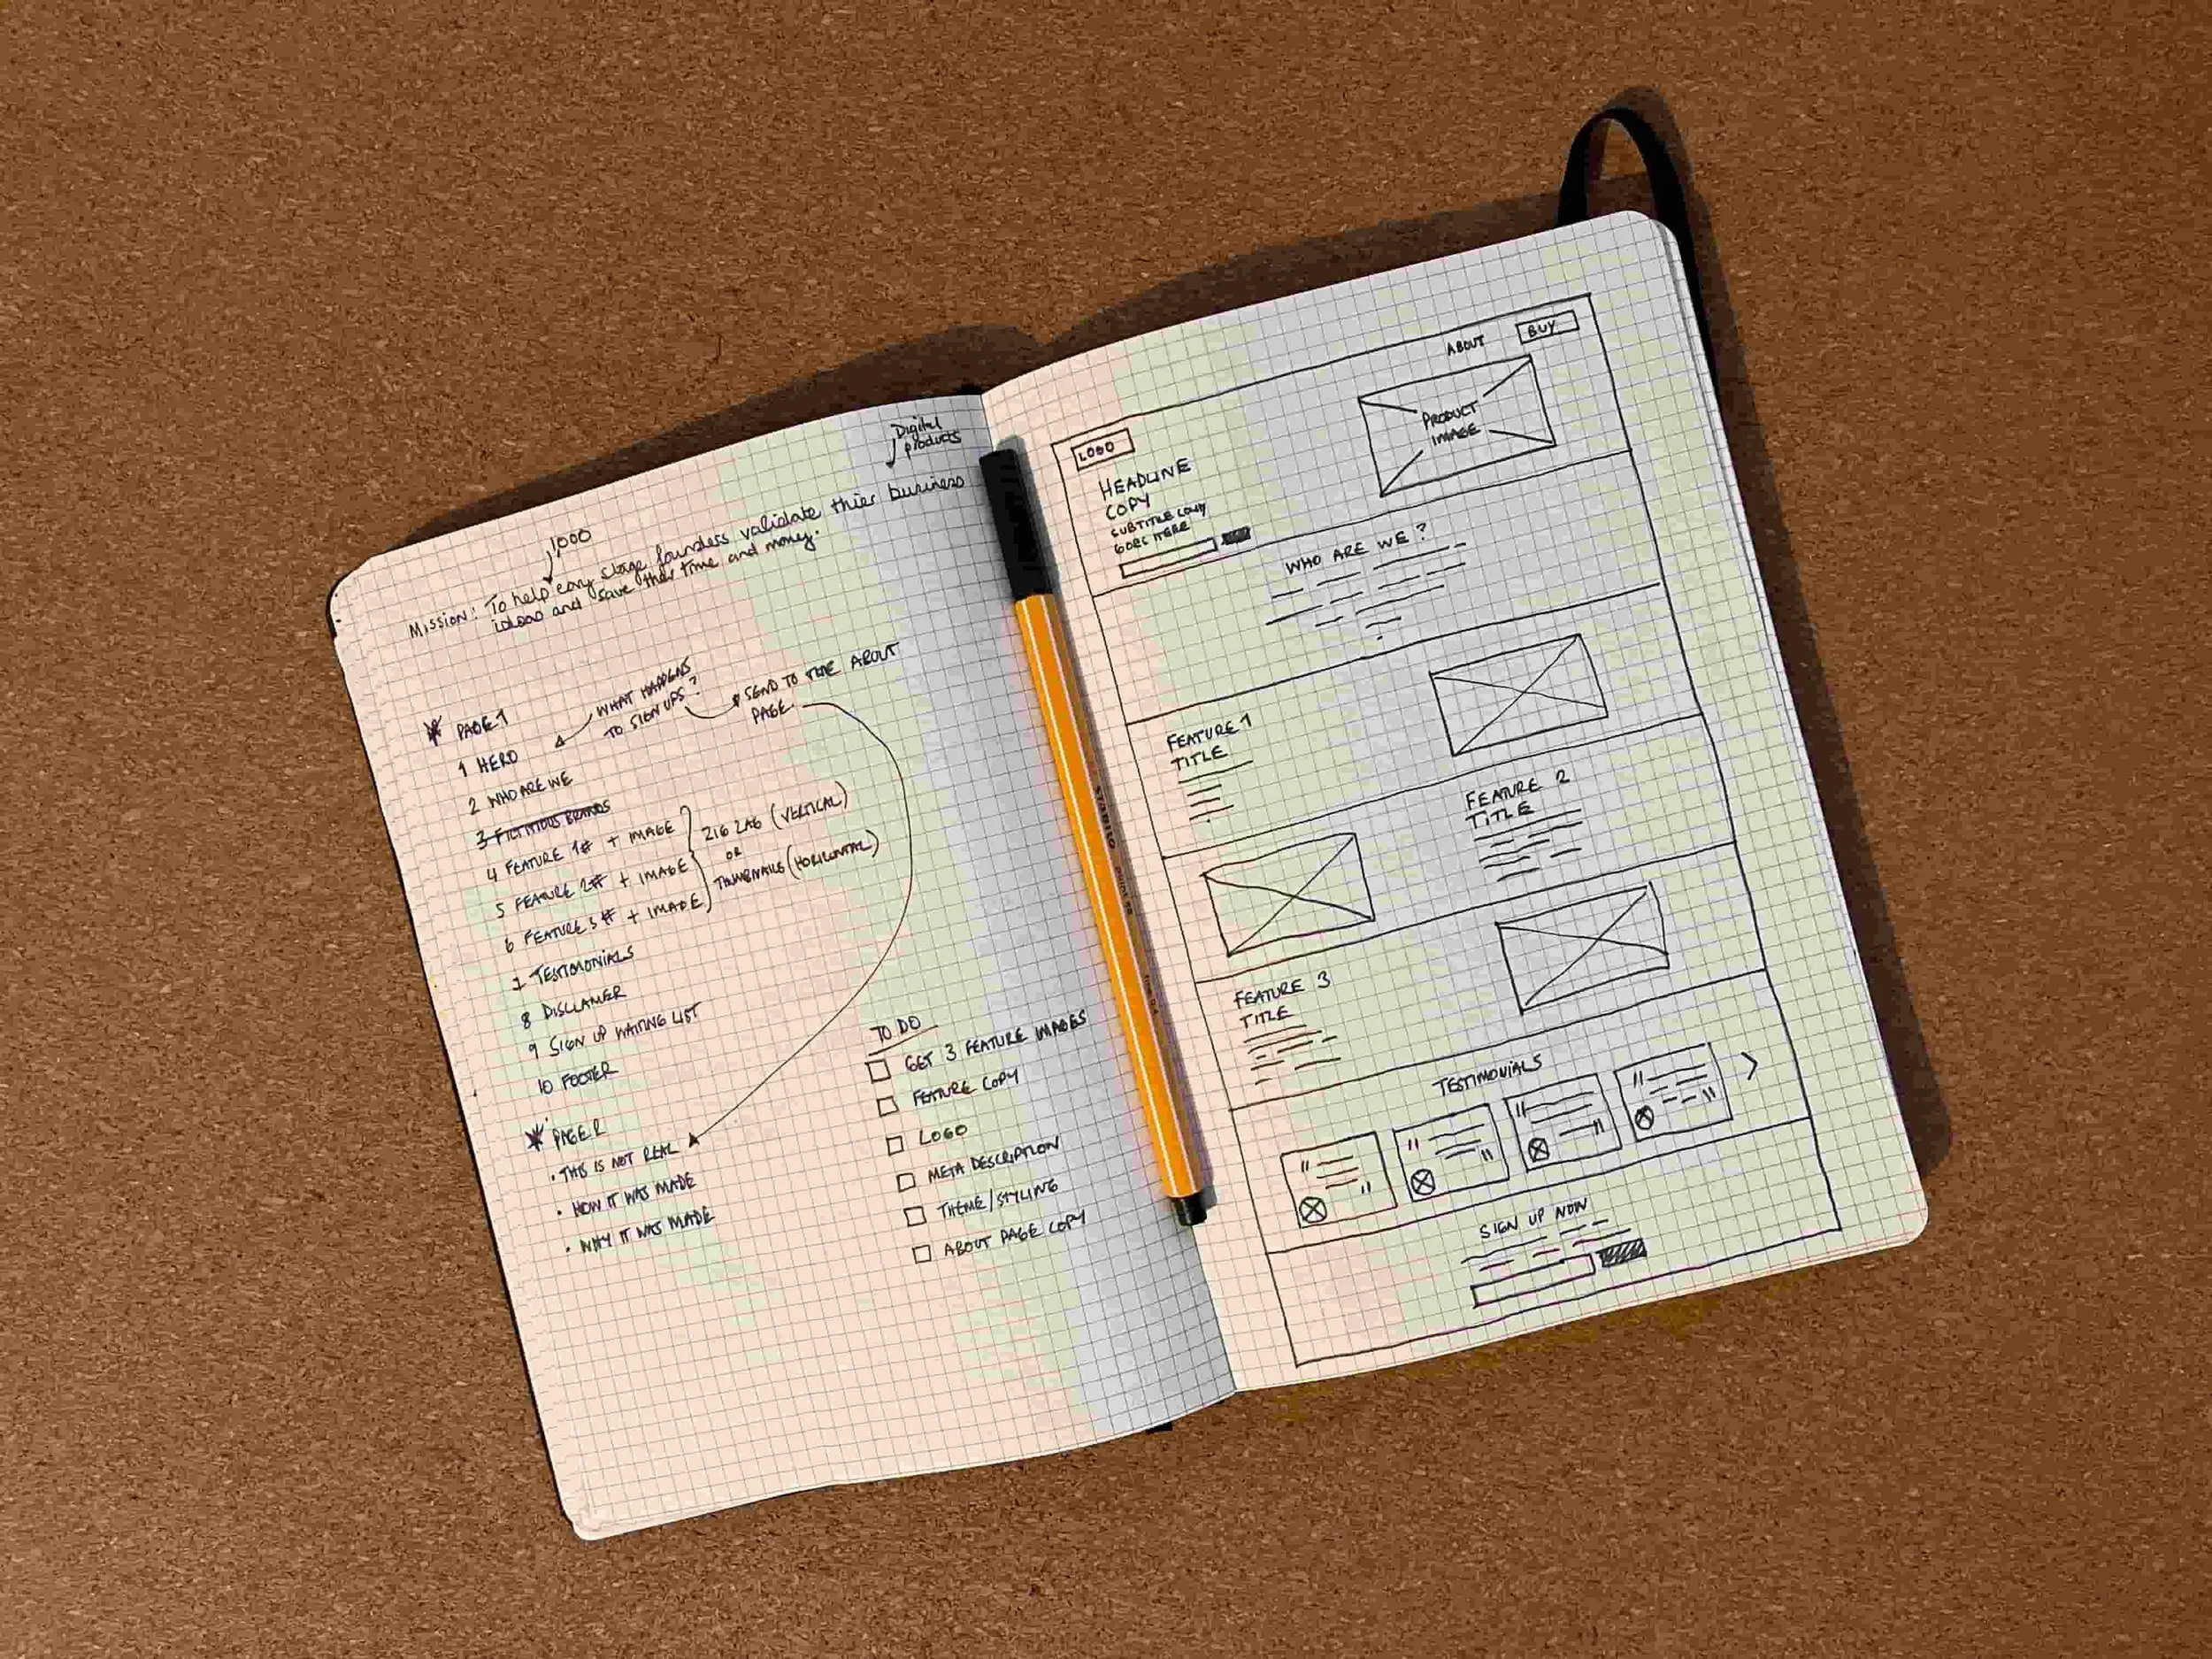 Digital
products
1000
Mission: To help eary stage founders validate thier business
ideas and save their time and money.
WHAT HAPPENS
TO SIGN UPS?
SEND TO THE ABOUT
PAGE
PAGE 1
1 HERO
2 WHO ARE WE
3 FICTITIOUS BRANDS
4 FEATURE 1# + IMAGE
5 FEATURE 2# + IMAGE
6 FEATURE 3# + IMAGE
ZIG ZAG (VERTICAL)
OR
THUMBNAILS (HORIZONTAL)
7 TESTIMONIALS
8 DISCLAMER
9 SIGN UP WAITING LIST
10 FOOTER
PAGE 2
• THIS IS NOT REAL
• HOW IT WAS MADE
• WHY IT WAS MADE
TO DO
GET 3 FEATURE IMAGES
FEATURE COPY
LOGO
META DESCRIPTION
THEME/STYLING
ABOUT PAGE COPY
STABILO point 88
ABOUT
BUY
LOGO
PRODUCT
IMAGE
HEADLINE
COPY
SUBTITLE COPY
GOES HERE
WHO ARE WE?
FEATURE 1
TITLE
FEATURE 2
TITLE
FEATURE 3
TITLE
TESTIMONIALS
SIGN UP NOW